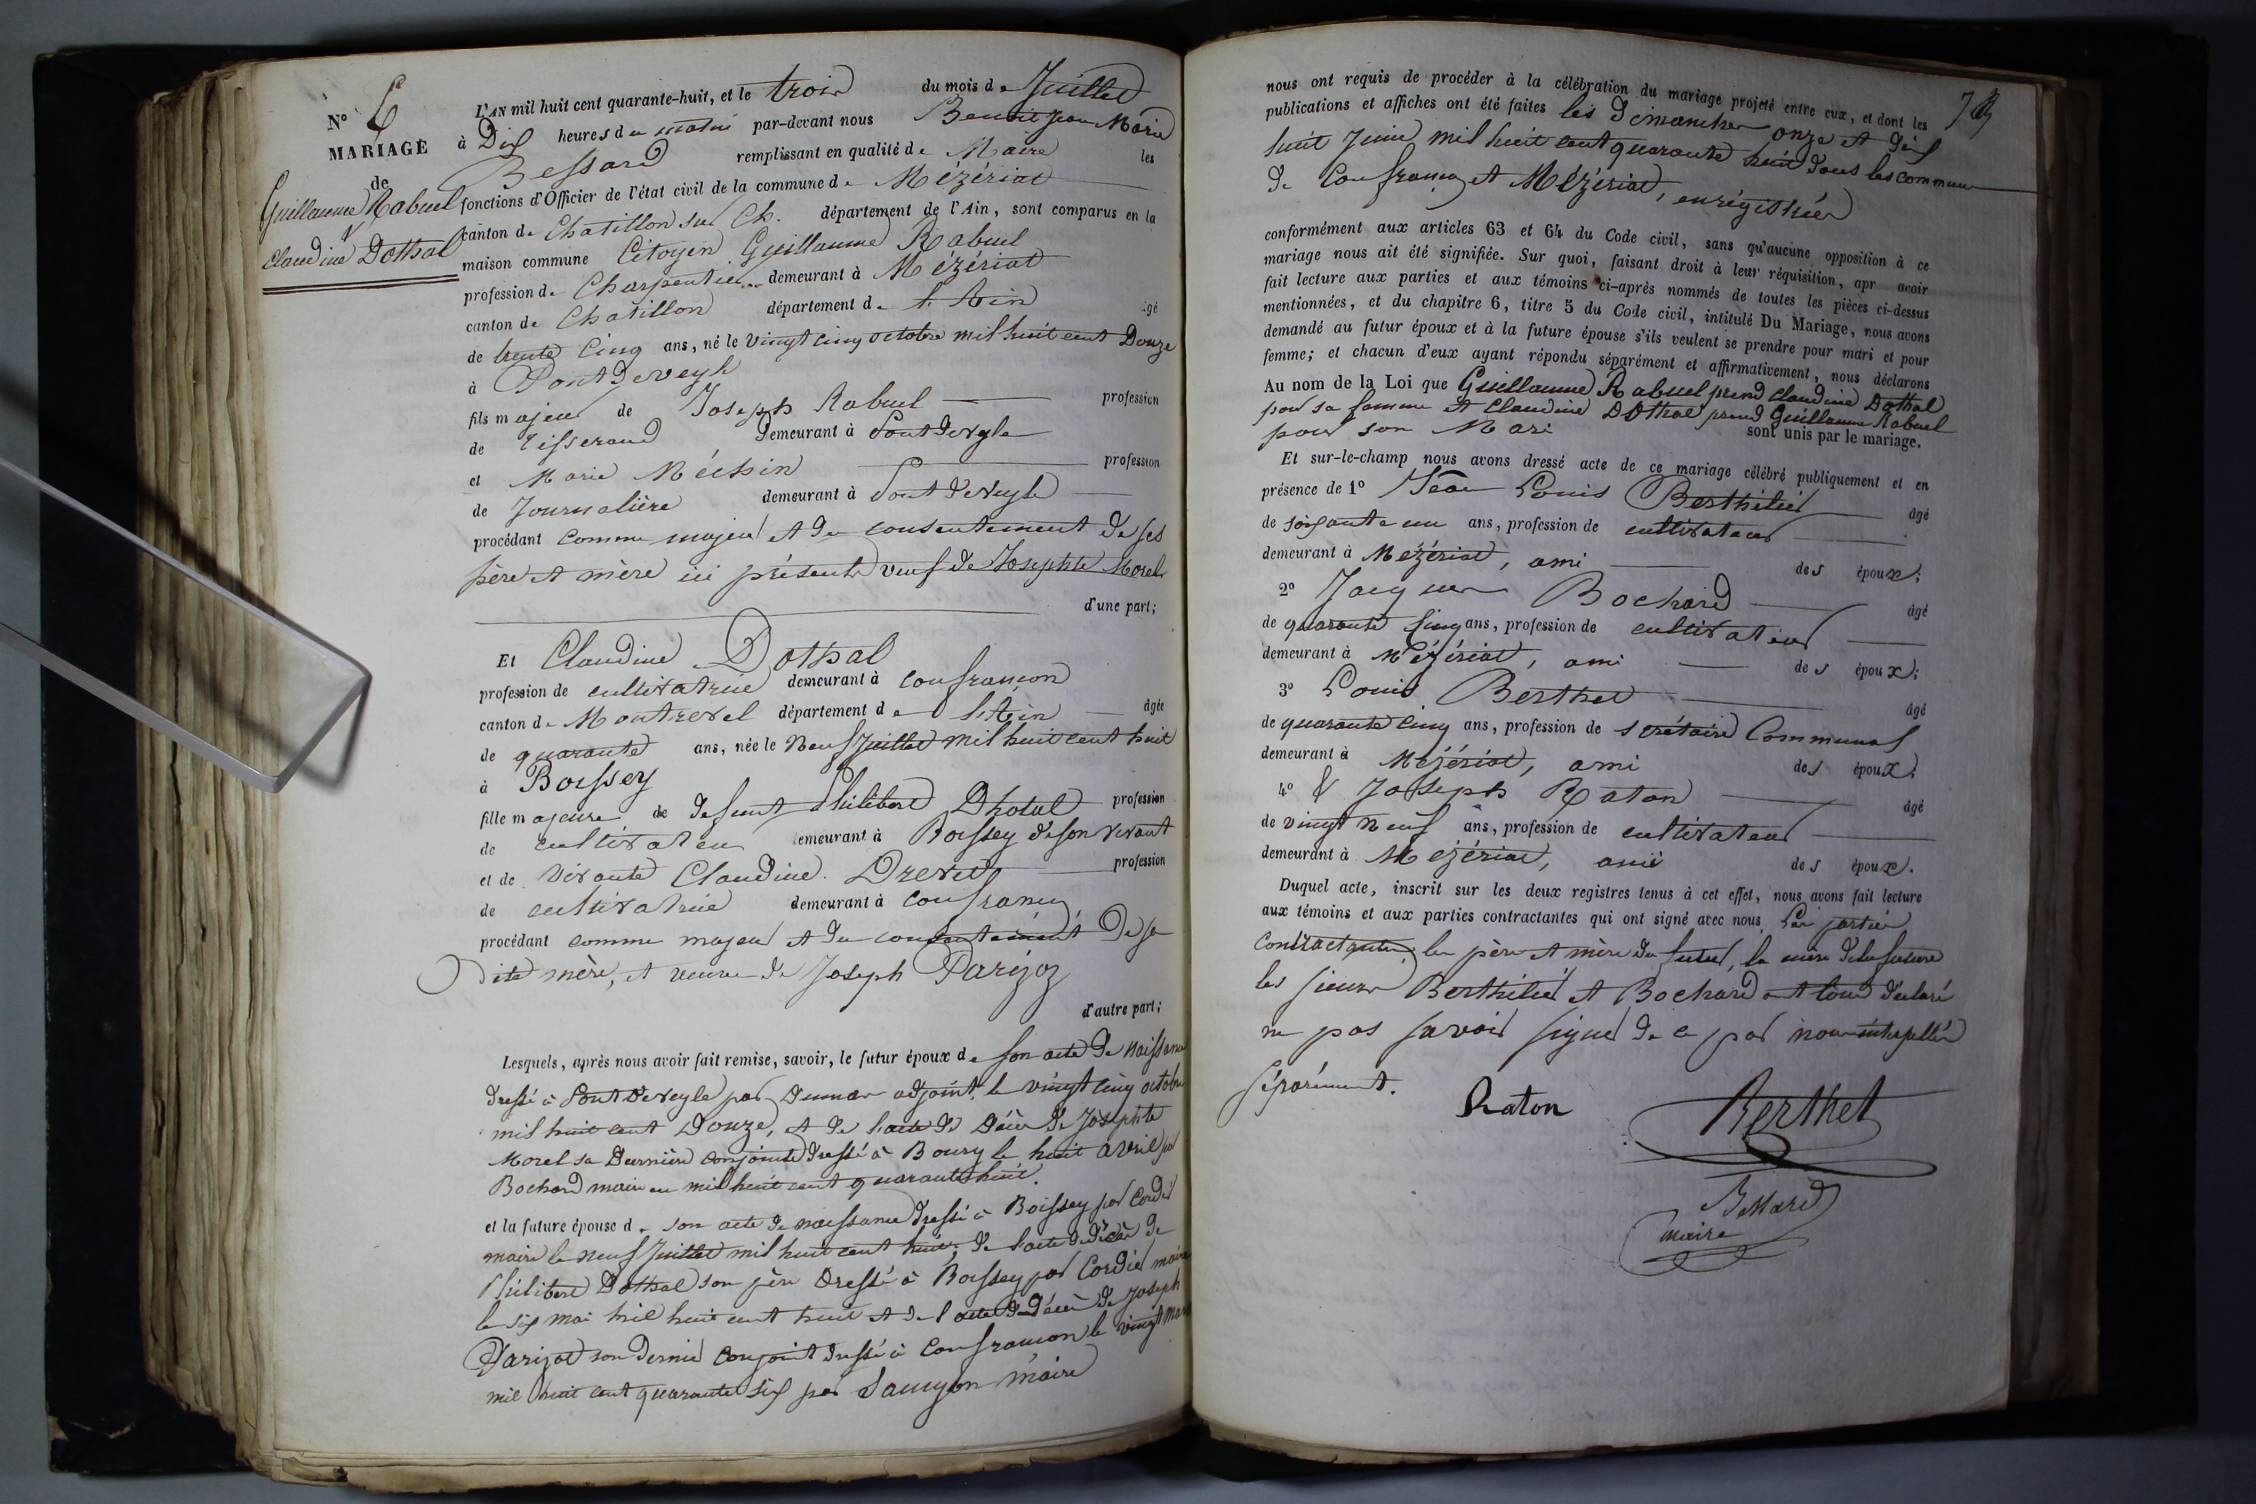 N° 6
MARIAGE
de
Guillaume Rabuel
&
Claudine Dothal
L'AN mil huit cent quarante-huit, et le trois du mois de Juillet
à Dix heures du matin par-devant nous Benoit Jean Marie
Bessard remplissant en qualité de Maire les
fonctions d'Officier de l'état civil de la commune de Mézériat
canton de Chatillon sur Ch. département de l'Ain, sont comparus en la
maison commune Citoyen Guillaume Rabuel
profession de Charpentier demeurant à Mézériat
canton de Chatillon département de l'Ain âgé
de trente cinq ans, né le vingt cinq octobre mil huit cent Douze
à Pontdeveyle
fils majeur de Joseph Rabuel profession
de Tisserand demeurant à Pontdeveyle
et Marie Méchin profession
de Journalière demeurant à Pontdeveyle
procédant comme majeur et du consentement de ses
père et mère ici présents veuf de Josephte Morel
d'une part;
Et Claudine Dothal
profession de cultivatrice demeurant à confrançon
canton de Montrevel département de l'Ain âgée
de quarante ans, née le neuf Juillet mil huit cent huit
à Boissey
fille majeure de defunt Philibert Dhotal profession
de cultivateur demeurant à Boissey de son vivant
et de vivante Claudine Drevet profession
de cultivatrice demeurant à confrançon
procédant comme majeur et du consentement de sa
dite mère, et veuve de Joseph Parizoz
d'autre part;
Lesquels, après nous avoir fait remise, savoir, le futur époux de son acte de naissance
dressé à Pontdeveyle par Dumar adjoint le vingt cinq octobre
mil huit cent Douze, et de l'acte de Décès de Josephte
Morel sa Dernière conjointe dressé à Bourg le huit avril par
Bochard maire en mil huit cent quarante huit.
et la future épouse de son acte de naissance dressé à Boissey par Cordier
maire le neuf Juillet mil huit cent huit, de l'acte de décès de
Philibert Dothal son père dressé à Boissey par Cordier maire
le six mai mil huit cent huit et de l'acte de Décès de Joseph
Parizot son dernier conjoint dressé à confrançon le vingt mars
mil huit cent quarante six par maire
nous ont requis de procéder à la célébration du mariage projeté entre eux, et dont les
publications et affiches ont été faites les Dimanches onze et dix
huit Juin mil huit cent quarante huit dans les communes
de Confrançon et Mézériat, enrégistrées
conformément aux articles 63 et 64 du Code civil, sans qu'aucune opposition à ce
mariage nous ait été signifiée. Sur quoi, faisant droit à leur réquisition, apr avoir
fait lecture aux parties et aux témoins ci-après nommés de toutes les pièces ci-dessus
mentionnées, et du chapitre 6, titre 5 du Code civil, intitulé Du Mariage, nous avons
demandé au futur époux et à la future épouse s'ils veulent se prendre pour mari et pour
femme; et chacun d'eux ayant répondu séparément et affirmativement, nous déclarons
Au nom de la Loi que Guillaume Rabuel prend claudine Dothal
pour sa femme et Claudine Dothal prend Guillaume Rabuel
pour son Mari sont unis par le mariage.
Et sur-le-champ nous avons dressé acte de ce mariage célébré publiquement et en
présence de 1° Jean Louis Berthilier âgé
de soixante un ans, profession de cultivateur
demeurant à Mézériat, ami des époux;
2° Jacques Bochard âgé
de quarante cinq ans, profession de cultivateur
demeurant à Mézériat, ami des époux;
3° Louis Berthet âgé
de quarante cinq ans, profession de secrétaire Communal
demeurant à Mézériat, ami des époux;
4° & Joseph Raton âgé
de vingt neuf ans, profession de cultivateur
demeurant à Mézériat, ami des époux.
Duquel acte, inscrit sur les deux registres tenus à cet effet, nous avons fait lecture
aux témoins et aux parties contractantes qui ont signé avec nous, Les parties
contractantes, les père et mère du futur, la mère de la future
les sieurs Berthilier et Bochard ont tous déclaré
ne pas savoir signer de ce par nous interpellés
séparément.
Raton
Berthet
Bessard
maire